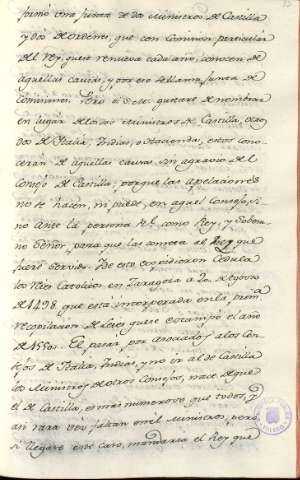 formó una Junta de dos Ministros de Castilla
y dos de ordenes, que con comision particular
del Rey, que se renueva cada año, conocen de
aquellas causas, y por eso se llama Junta de
Comisiones. Pero si el Rey gustare de nombrar
en lugar de los dos Ministros de Castilla, otros
dos de Italia, Indias, o Hacienda, estos cono-
ceran de aquellas causas, sin agravio del
Consejo de Castilla; porque las apelaciones
no se hacen, ni puede, en aquel Consejo, si
no ante la persona Rl. como Rey, y Sobera-
no Señor, para que las cometa al Juez que
fuere servido. De esto expidieron Cedula
los Reies Catolicos en Zaragoza a 20 de Agosto
de 1498 que está incorporada en la prim.a
recopilacion de Leies que se estampó el año
de 1550. El pasar por asociados a los Con-
sejos de Italia, Indias, y no ir al de Castilla
los Ministros de otros Consejos, nace de que
el de Castilla, es mas numeroso que todos, y
asi rara vez faltan en él Ministros, pero
si llegare este caso, mandaria el Rey que